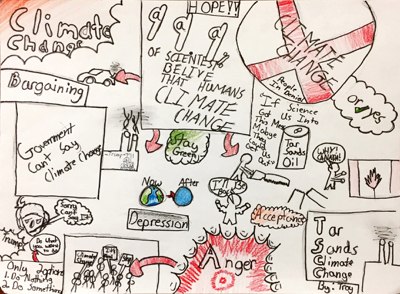 Climate
Change
HOPE!!
99%
OF SCIENTIST
BELIVE
THAT HUMANS
CLIMATE
CHANGE
CLIMATE
CHANGE
People
In Denial
Bargaining
Government
Can't Say
Climate Change
If Science
Got Us Into
This Mess
Mabye
They
Could Get
Us Out?
Tar
Sands
Oil
Stay
Green
Now
After
Depression
Sorry
Can't
Say It!
Trump
Do what
you want
Only 2 options
1. Do Nothing
2. Do Something
Acceptance
Anger
Tar
Sands
Climate
Change
By: Troy